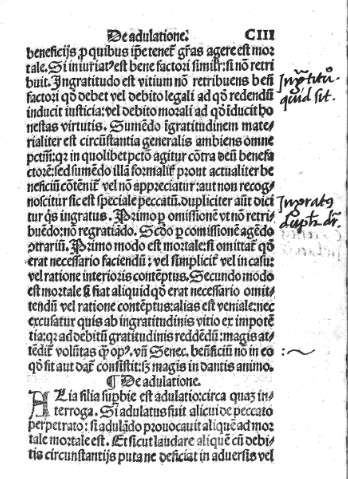 De adulatione.
CIII
beneficijs p quibus ip̄e tenet̄ gr̄as agere est mor
tale. Si iniuriat̄ est bene factori simr̄: si nō retri
buit. Ingratitudo est vitium nō retribuens ben̄
factori qd̄ debet vel debito legali ad qd̄ redendū
inducit iusticia: vel debito morali ad qd̄ īducit ho
nestas virtutis. Sumēdo īgratitudinem mate-
rialiter est circūstantia generalis ambiens omne
pctm̄: qr in quolibet pctō agitur cōtra deū benefa
ctorē: sed sumēdo illā formalit̄ prout actualiter be
neficiū cōtēnit̄ vel nō appreciatur: aut non recog-
noscitur sic est speciale peccatū. dupliciter aūt dici
tur qs ingratus. Primo p omissionē vt nō retri-
buēdo: nō regratiādo. Scd̄o p comissionē agēdo
ɔtrariū. Primo modo est mortale: si omittat̄ qd̄
erat necessario faciendū: vel simplicit̄ vel in casu:
vel ratione interioris contēptus. Secundo modo
est mortale si fiat aliquid qd̄ erat necessario omit-
tendū vel ratione contēptus: alias est veniale: nec
excusatur quis ab ingratitudinis vitio ex impotē
tia: qr ad debitū gratitudinis reddēdū: magis at-
tēdit̄ volūtas q̄ op⁹. vn̄ Senec. bn̄ficiū nō in eo
qd̄ fit aut dat̄ consistit: sʒ magis in dantis animo.
¶ De adulatione.
Alia filia supbie est adulatio: circa quaʒ in-
terroga. Si adulatus fuit alicui de peccato
perpetrato: si adulādo prouocauit aliquē ad mor
tale mortale est. Et sicut laudare aliquē cū debi-
tis circunstantijs puta ne deficiat in aduersis vel
quid sit.